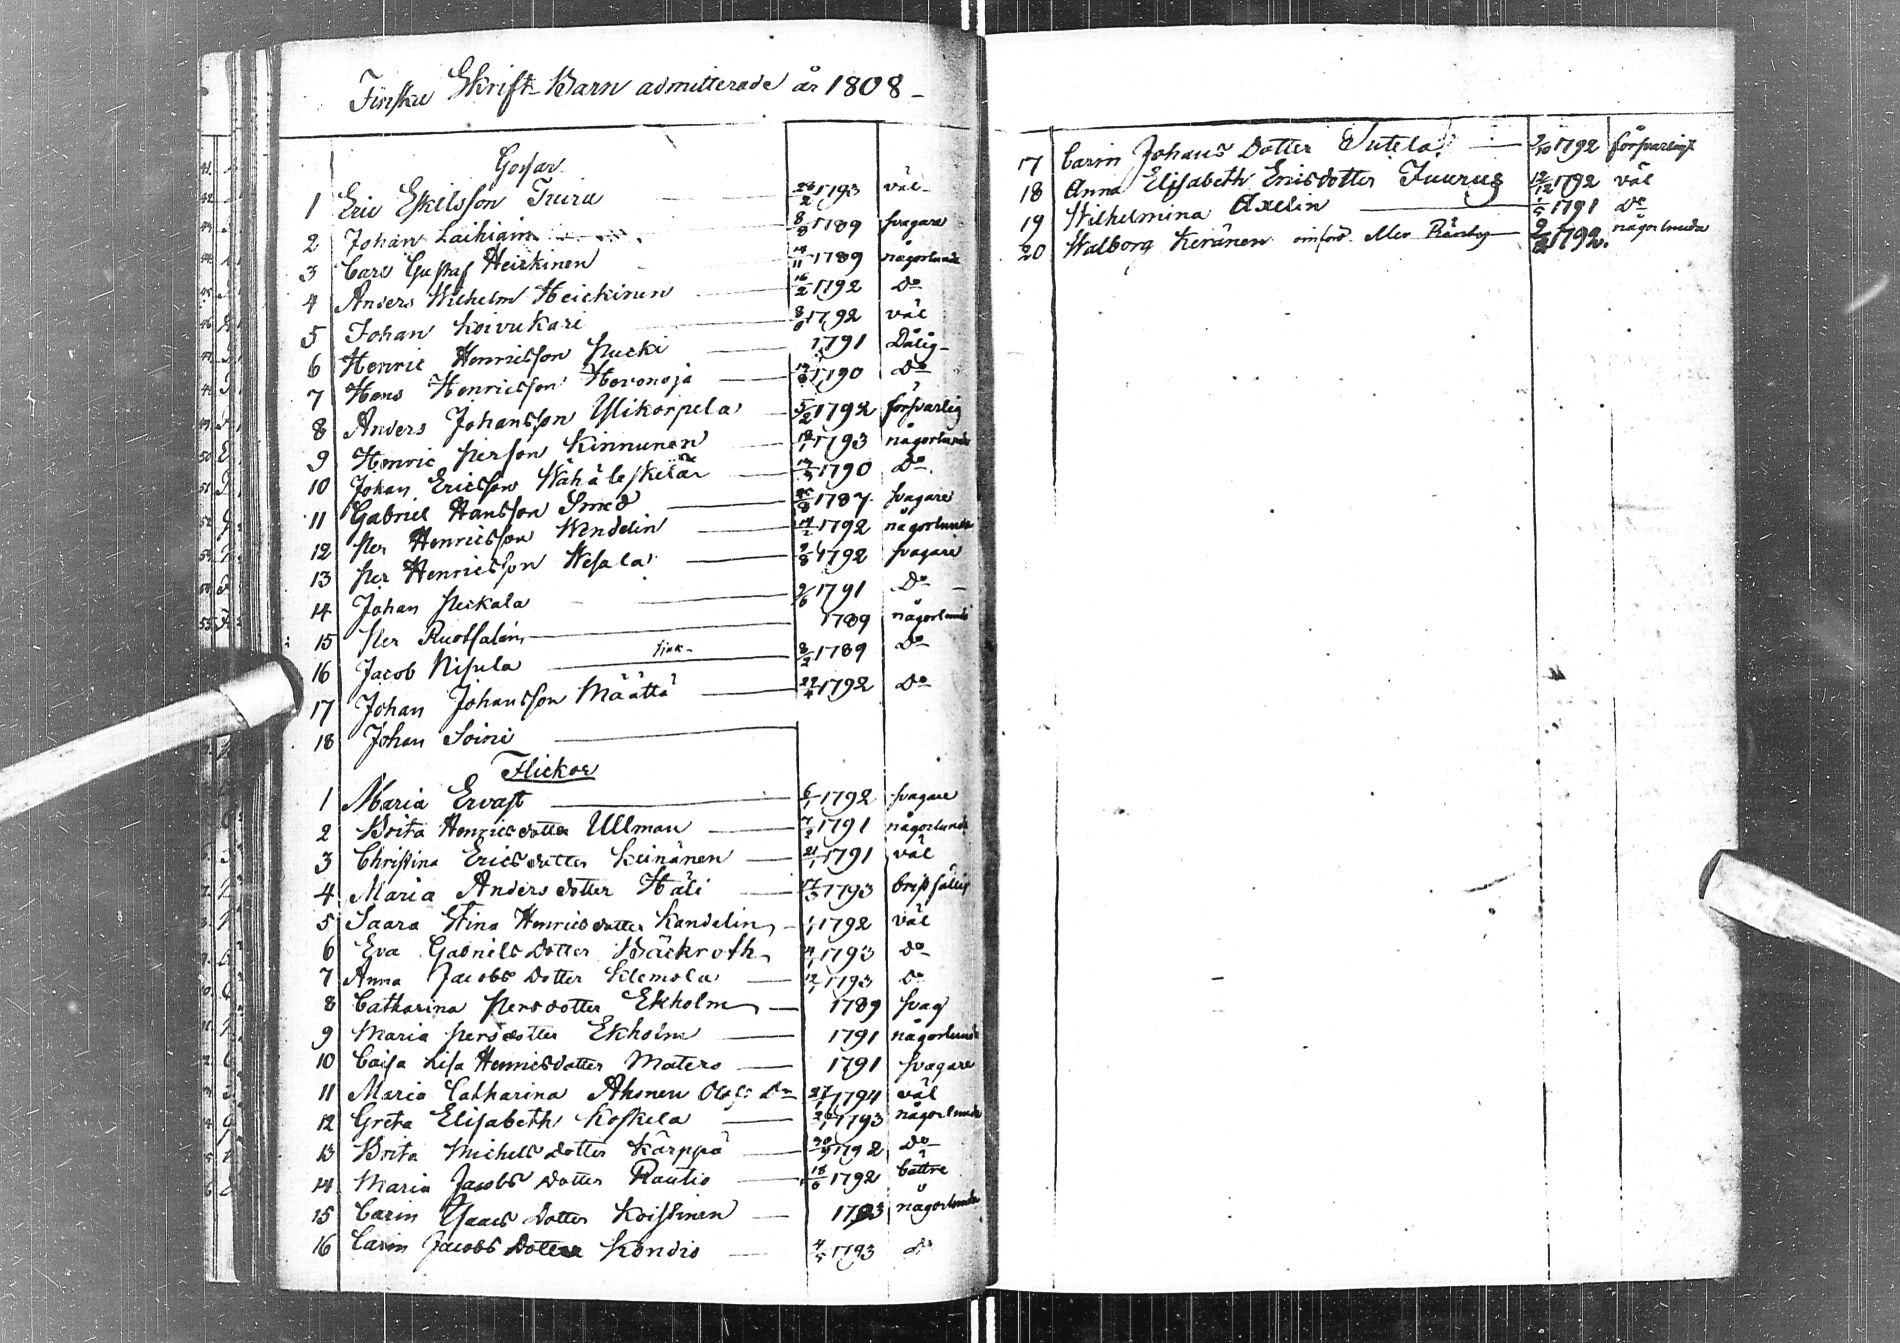 Finska Skrift-Barn admitterade år 1808
Gossar
1 Eric Eskelsson Tuira 1793 väl
2 Johan Laihiain 8/8 1789 svagare
3 Carl Gustaf Heickinen 1789 någorlunda
4 Anders Wilhelm Heickinen 16/2 1792 Do
5 Johan Koivukari 1792 väl
6 Henric Henricsson Pucki 1791 Dålig
7 Hans Henricsson Hovonoja 1790 Do
8 Anders Johansson Ylikorpela 5/2 1792 försvarlig
9 Henric Persson Kinnunen 1793 någorlunda
10 Johan Ericsson 1790 Do
11 Gabriel Hansson Smed 1787 svagare
12 Per Henricsson Wendelin 1792 någorlunda
13 Per Henricsson Wesala 1792 svagare
14 Johan Pickala 9/6 1791 Do
15 Per Ruotsalain 1789 någorlunda
16 Jacob Nisula 8/2 1789 Do
17 Johan Johansson Määttä 1792 Do
18 Johan Soini
Flickor
1 Maria Ervast 6/1 1792 svagare
2 Brita Henricsdotter Ullman 1791 någorlunda
3 Christina Ericsdotter Keinänen 21/1 1791 väl
4 Maria Andersdotter Häli 1793 bristfällig
5 Saara Stina Henricsdotter Kandelin 1/1 1792 väl
6 Eva Gabriels Dotter Bäckroth 1793 Do
7 Anna Jacobs Dotter Klemola 12/1 1793 Do
8 Catharina Persdotter Ekholm 1789 svag
9 Maria Persdotter Ekholm 1791 någorlunda
10 Caisa Lisa Henricsdotter Matero 1791 svagare
11 Maria Catharina Ahonen Olofs Dr 1794 väl
12 Greta Elisabeth Koskela 1793 någorlunda
13 Brita Michels Dotter Kärppä 1792 Do
14 Maria Jacobs Dotter Rautio 18/6 1792 bättre
15 Carin Isaacs Dotter Koistinen 1793 någorlunda
16 Carin Jacobs Dotter Kondio 1793 Do
17 Carin Johans Dotter Sutela 1792 försvarligt
18 Anna Elisabeth Ericsdotter Juurus 12/12 1792 väl
19 Wilhelmina Axelin 1/5 1791 Do
20 Walborg Keränen 1792 någorlunda